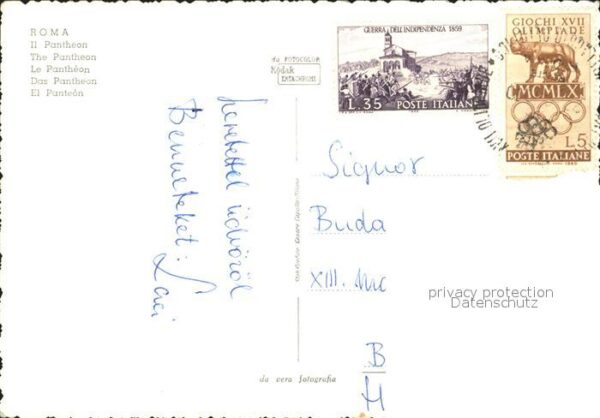 ROMA
Il Pantheon
The Pantheon
Le Panthéon
Das Pantheon
El Panteón
da FOTOCOLOR
Kodak
EKTACHROME
GUERRA DELL'INDIPENDENZA 1859
L. 35 POSTE ITALIANE
GIOCHI XVII
OLIMPIADE
MCMLX
L. 5
POSTE ITALIANE
Szeretettel üdvözöl
Benneteket:
Signor
Buda
XIII.
B
H
privacy protection
Datenschutz
da vera fotografia